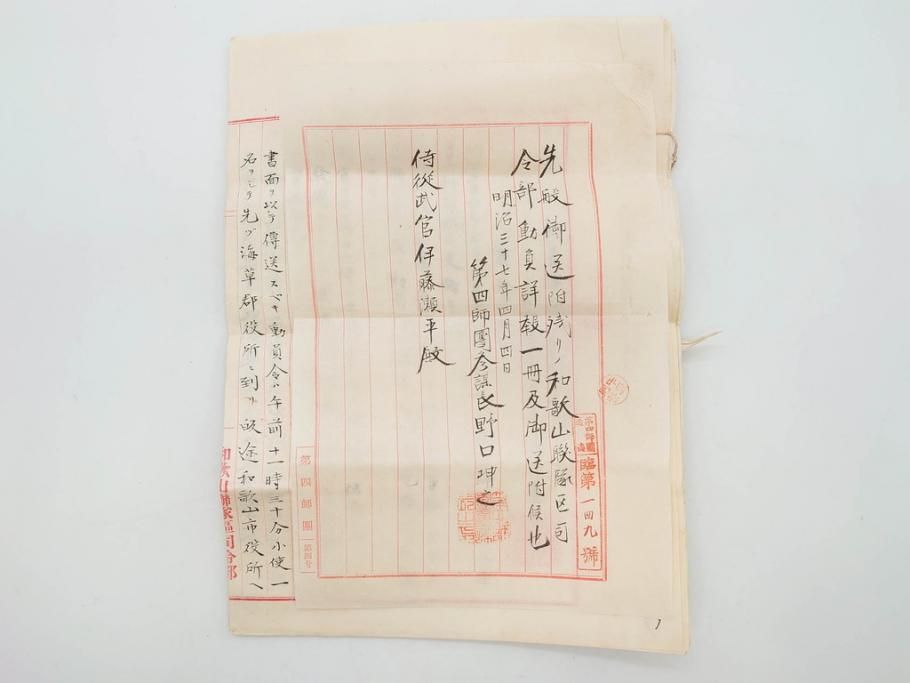 臨第一四九號
先般御送附残リノ和歌山聯隊区司
令部動員詳報一冊及御送附候也
明治三十七年四月四日
第四師團参謀長野口坤之
侍從武官伊藤瀬平殿
第四師團
書面ヲ以テ傳送スベキ動員令ハ午前十一時三十分小使一
名ヲシテ先ヅ海草郡役所ニ到リ 途和歌山市役所ヘ
和歌山聯隊區司令部